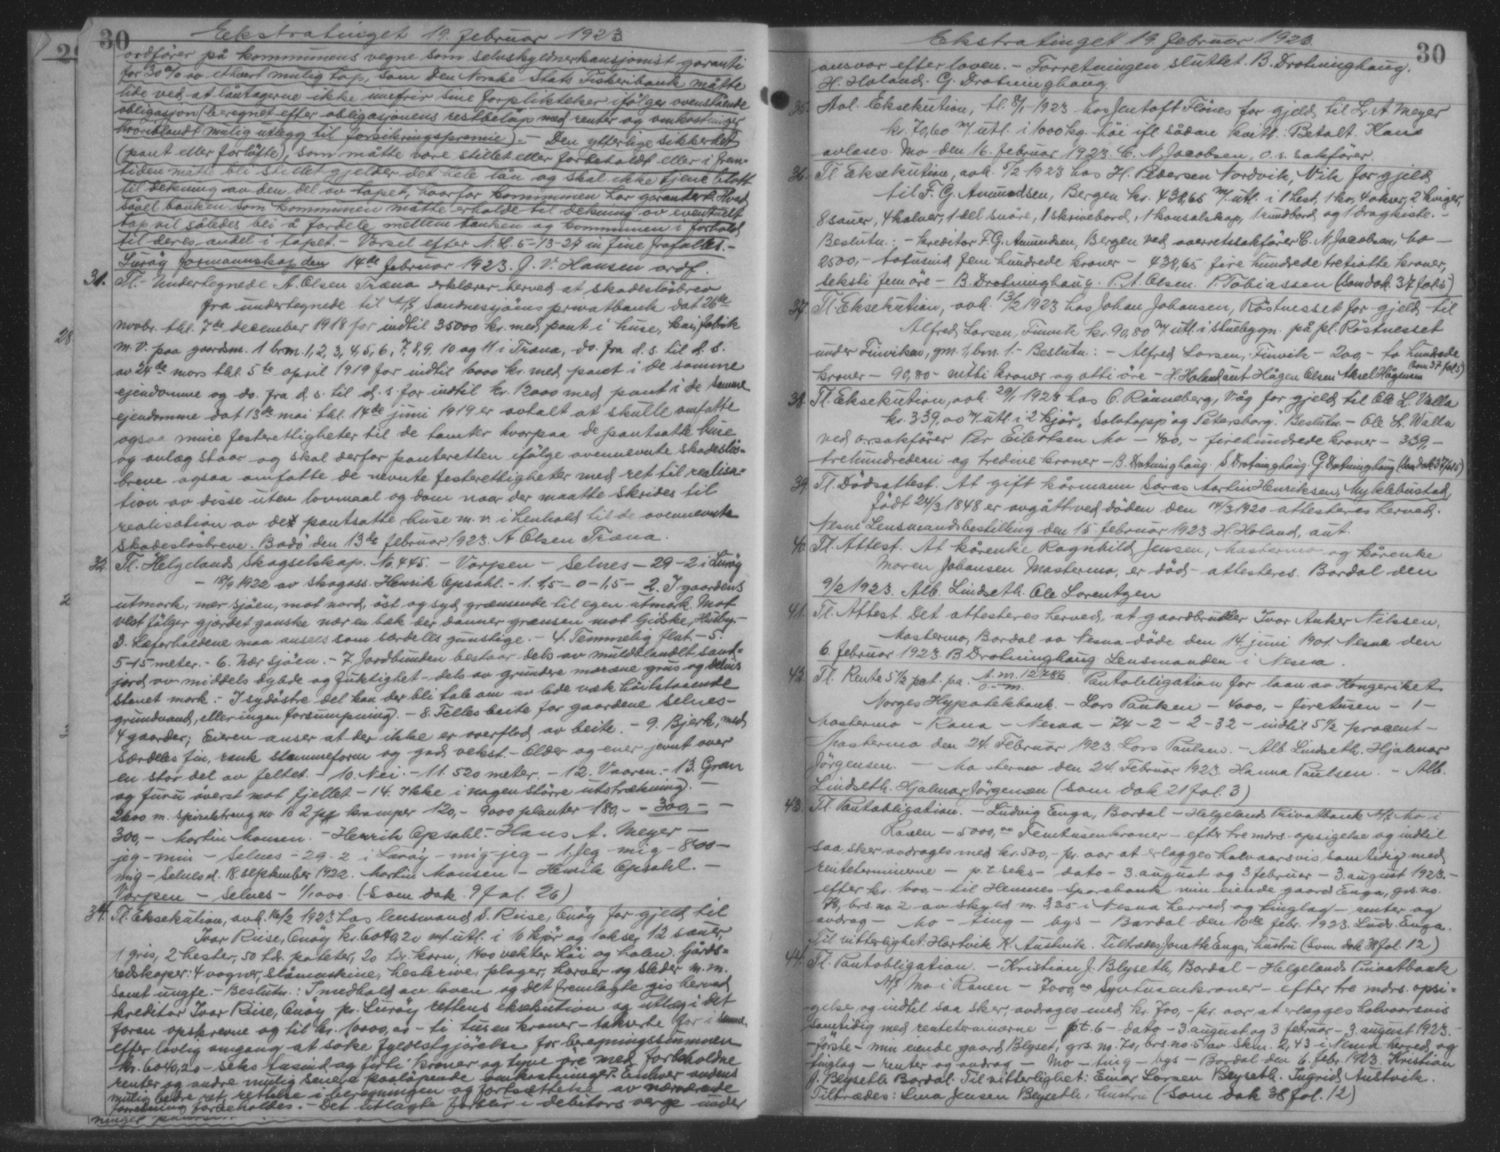 30 Ekstratinget 19. februar 1923
ordfører på kommunens vegne som selvskyldnerkausjonist garanti
for 30% av ethvert mulig tap, som den Norske Stats Fiskeribank måtte
lide ved at låntagerne ikke innfrir sine forpliktelser ifølge ovenstående
obligasjon (beregnet efter obligasjonens restbeløp med renter og omkostninger
hvoriblandt mulig utlegg til forsikringspremie). - Den ytterlige sikkerhet
(pant eller forløfte), som måtte være stillet eller forbeholdt eller i frem-
tiden måtte bli stillet gjelder det hele lån og skal ikke tjene
til dekning av den del av tapet, hvorfor kommunen har garantert. Hvad
såvel banken som kommunen måtte erholde til dekning av eventuelt
tap vil således bli å fordele mellem banken og kommunen i forhold
til deres andel i tapet. - Varsel efter N.L. 5-13-27 in fine frafalles. -
Lurøy formannskap den 14de februar 1923. J. V. Hansen ordf.
31. Tl. Undertegnede A. Olsen Træna erklærer herved at skadesløsbrev
fra undertegnede til A/S Sandnessjøens privatbank dat 26de
novbr. thl. 7de desember 1918 for indtil 35000 kr. med pant i huse, kai, fabrik
m.v. paa gaardsn. 1 brn. 1, 2, 3, 4, 5, 6, 7, 8, 9, 10 og 11 i Træna, do. fra d.s. til d.s.
av 24de mars thl. 5te april 1919 for indtil 6000 kr. med pant i de samme
ejendomme og do. fra d.s. til d.s. for indtil kr. 12000 med pant i de samme
ejendomme dat 13de mai thl. 14de juni 1919 er avtalt at skulle omfatte
ogsaa mine festerettigheter til de tomter hvorpaa de pantsatte huse
og anlæg staar og skal derfor panteretten ifølge ovennevnte skadesløs-
breve ogsaa omfatte de nevnte festerettigheter med ret til realisa-
tion av disse uten lovmaal og dom naar der maatte skrides til
realisation av de pantsatte huse m.v. i henhold til de ovennevnte
skadesløsbreve. Bodø den 13de februar 1923. A Olsen Træna.
32. Tl. Helgeland Skogselskap. No 445. - Vorpen - Selnes - 29-2 i Lurøy
- 18/9 1922 av skogass. Henrik Opsahl. - 1. 1,5 - 0 - 1,5 - 2. I gaardens
utmark, nær sjøen, mot nord, øst og syd grænsende til egen utmark. Mot
vest følger gjerdet ganske nær en bæk der danner grænsen mot Gidske, Husby. -
3. Læforholdene maa ansees som særdeles gunstige. - 4. Temmelig flat - 5.
5-15 meter. - 6. Nær sjøen. - 7. Jordbunden bestaar dels av muldblandet sand-
jord av middels dybde og fuktighet - dels av grundere moræne grus og delvis
stenet mark. - I sydøstre del kan der bli tale om av lede væk høitstaaende
grundvand, eller ingen forsumpning). - 8. Fælles beite for gaardene Selnes -
4 gaarder; Eieren anser at der ikke er overflod av beite. - 9. Bjerk, med
særdeles fin, rank stammeform og god vekst - Older og ener jevnt over
en stor del av feltet. - 10. Nei. - 11. 520 meter. - 12. Vaaren. - 13. Gran
og furu øverst mot fjellet - 14. Ikke i nogen større utstrækning. -
2600 m. spiraltraad no 16 2 pk kramper 120,- 9000 planter 180,- - 300,- -
300,- Martin Monsen. - Henrik Opsahl. - Hans A. Meyer -
jeg - min - Selnes - 29-2 i Lurøy - mig - jeg - 1. Jeg - mig - 800 -
mig - Selnes d. 18 september 1922. Martin Monsen - Henrik Opsahl. -
Vorpen - Selnes - 1/1000. (Som dok 9 fol. 26)
34. Tl. Eksekution, avh. 16/2 1923 hos lensmand S. Riise, Onøy for gjeld til
Ivar Riise, Onøy kr. 6040,20 m/utl. i 16 kjør og 1 okse, 12 sauer,
1 gris, 2 hester, 50 tdr. poteter, 20 tdr. korn, 1400 vekter høi og halm. Gårds-
redskaper: 4 vogner, slåmaskine, hesterive, plager, harver og sleder m.m.
samt ungfe. - Beslutn.: I medhold av loven og det fremlagte gis herved
kreditor Ivar Riise, Onøy pr. Lurøy rettens eksekution og utlæg i det
foran opskrevne og til kr. 10000,00 - ti tusen kroner - takserte for i samme
efter lovlig omgang at søke fyldestgjørelse for berapningssummen
kr. 6040,20 - seks tusind og førti kroner og tyve øre med forbeholdne
renter og andre mulig senere paaløpende omkostninger. Enhver andens
mulig bedre ret, rettelse i beregningen og fortsættelse av nærværende
forretning forbeholdes. - Det utlagte forblir i debitors verge under
Ekstratinget 19. februar 1923. 30
ansvar efter loven. - Forretningen sluttet. B. Drotninghaug.
H. Haland. G. Drotninghaug.
35. Avl. Eksekution, tl. 8/1 1923 hos Jentoft Flønes for gjeld til L. A Meyer
kr. 70,60 m/utl. i 1000 kg. høi ifl sådan kvitt: Betalt. Kan
avlæses. Mo den 16. februar 1923. C. N. Jacobsen, o.s. sakfører.
36. Tl. Eksekution, avh. 5/2 1923 hos H. Pedersen Nordvik, Vik for gjeld
til F. G. Amundsen, Bergen kr. 439,65 m/utl. i 1 hest, 1 kø, 4 okser, 2 kviger,
8 sauer, 4 kalver, 1 del snøre, 1 skrivebord, 1 konsolskap, 1 rundbord, og 1 dragkiste. -
Beslutn: - kreditor F.G. Amundsen, Bergen ved overretssakfører C. N. Jacobsen, Mo -
2500,- totusind fem hundrede kroner - 439,65 fire hundrede tretiatte kroner,
seksti fem øre - B. Drotninghaug. P. A. Olsen. P. Tobiassen (som dok 37 fol 5)
37. Tl. Eksekution, avh. 13/2 1923 hos Johan Johansen, Røstnesset for gjeld til
Alfred Larsen, Finvik kr. 90,80 m/utl. i stuebygn. på pl. Røstnesset
under Finviken, gm. , brn. 1. - Beslutn: - Alfred Larsen, Finvik - 200,- to hundrede
kroner - 90,80 - nitti kroner og otti øre - H. Haland aut Hågen Olsen Aksel Hågensen (som 37 fol 5)
38. Tl. Eksekution, avh. 29/1 1923 hos O. Rånneberg, Våg for gjeld til Ole L. Valla
kr. 339,00 m/utl. i 2 kjør, Salotopp og Petersborg. Beslutn - Ole L. Walla
ved orsakfører Per Eilertsen Mo - 400,- firehundrede kroner - 339,-
trehundredeni og tredive kroner - B. Drotninghaug. S. Drotninghaug. G. Drotninghaug (Som dok 37 fol 5)
39. Tl. Dødsattest. At gift kårmann Jonas Martin Henriksen, Myklebustad,
født 24/3 1848 er avgått ved døden den 14/3 1920 attesteres herved.
Nesne Lensmandsbestilling den 15 februar 1923 H. Haland, aut.
40. Tl. Attest. At kårenke Ragnhild Jensen, Mastermo og kårenke
Maren Johansen Mastermo, er død - attesteres. Bardal den
9/2 1923. Alb. Lindseth. Ole Lorentzen
41. Tl. Attest. Det attesteres herved, at gaardbruker Ivar Anker Nilssen,
Mastermo, Bardal av Nesna døde den 14. juni 1901. Nesna den
6. februar 1923. B Drotninghaug Lensmanden i Nesna.
42. Tl. Rente 5½ pct. pa. A.m. 12786 Pantobligation for laan av Kongeriket
Norges Hypotekbank - Lars Paulsen - 4000,- firetusen - 1 -
Mastermo - Rana - Nesna - 74-2-2-32 - indtil 5½ procent -
Mastermo den 24. Februar 1923. Lars Paulsen. - Alb. Lindseth. Hjalmar
Jørgensen - Mastermo den 24. Februar 1923. Hanna Paulsen. - Alb.
Lindseth. Hjalmar Jørgensen (Som dok 21 fol. 3)
43. Tl. Pantobligation. - Ludvig Enga, Bardal - Helgeland Privatbank A/S Mo i
Ranen - 5000,00 Femtusenkroner - efter tre mdrs. opsigelse og indtil
saa sker avdrages med kr. 500,- pr. aar at erlægges halvaarsvis samtidig med
renteterminerne - p.t. seks - dato - 3. august og 3 februar - 3. august 1923. -
efter kr. 600,- til Hemnes Sparebank min eiende gaard Enga, grs. no.
, brs. no 2 av skyld m. 3.35 i Nesna herred og tinglag - renter og
avdrag - Mo - ting - bys - Bardal den 10de febr. 1923. Ludv. Enga.
Til vitterlighet: Hartvik K. Austvik. Tiltrædes: Jonette Enga, hustru (Som dok 38 fol. 12)
44. Tl. Pantobligation. - Kristian J. Blyseth, Bardal - Helgelands Privatbank
A/S Mo i Ranen - 7000,00 Syvtusenkroner - efter tre mdrs. opsi-
gelse og indtil saa sker, avdrages med kr. 700,- pr. aar at erlægges halvaarsvis
samtidig med renteterminerne - p.t. 6 - dato - 3. august og 3 februar - 3. august 1923. -
første - min eiende gaard Blyset, grs. no. 70, brs. no. 5 av skm. 2,43 i Nesna herred og
tinglag - renter og avdrag - Mo - ting - bys - Bardal den 6. febr. 1923. Kristian
J. Blyseth Bardal. Til vitterlighet: Einar Larsen Blyseth. Ingrid Austvik.
Tiltrædes: Lina Jensen Blyseth, hustru (Som dok 38 fol. 12)